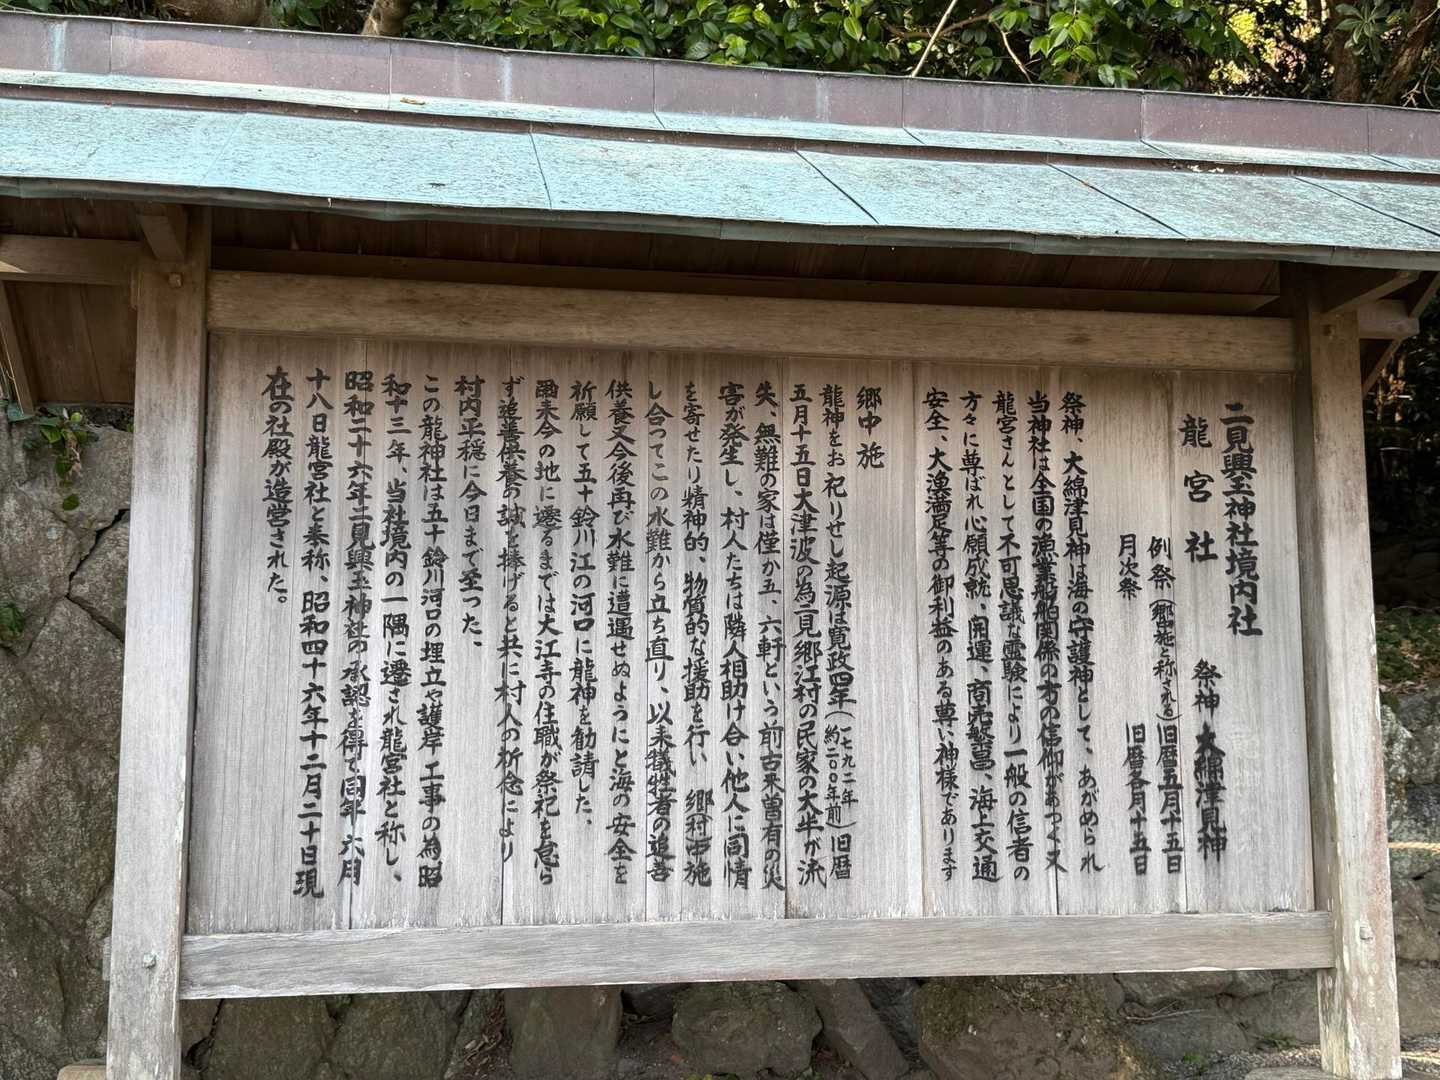 二見興玉神社境内社
龍宮社　祭神　大綿津見神
例祭（郷中施と称される）旧暦五月十五日
月次祭　旧暦各月十五日
祭神、大綿津見神は海の守護神として、あがめられ
当神社は全国の漁業船舶関係の方の信仰があつく又
龍宮さんとして不可思議な霊験により一般の信者の
方々に尊ばれ心願成就、開運、商売繁昌、海上交通
安全、大漁満足等の御利益のある尊い神様であります
郷中施
龍神をお祀りせし起源は寛政四年（一七九二年約二〇〇年前）旧暦
五月十五日大津波の為二見郷江村の民家の大半が流
失、無難の家は僅か五、六軒という前古未曽有の災
害が発生し、村人たちは隣人相助け合い他人に同情
を寄せたり精神的、物質的な援助を行い　郷村中施
し合つてこの水難から立ち直り、以来犠牲者の追善
供養又今後再び水難に遭遇せぬようにと海の安全を
祈願して五十鈴川江の河口に龍神を勧請した、
爾来今の地に遷るまでは大江寺の住職が祭祀を怠ら
ず追善供養の誠を捧げると共に村人の祈念により
村内平穏に今日まで至った、
この龍神社は五十鈴川河口の埋立や護岸工事の為昭
和十三年、当社境内の一隅に遷され龍宮社と称し、
昭和二十六年二見興玉神社の承認を得て同年六月
十八日龍宮社と奉称、昭和四十六年十二月二十日現
在の社殿が造営された。